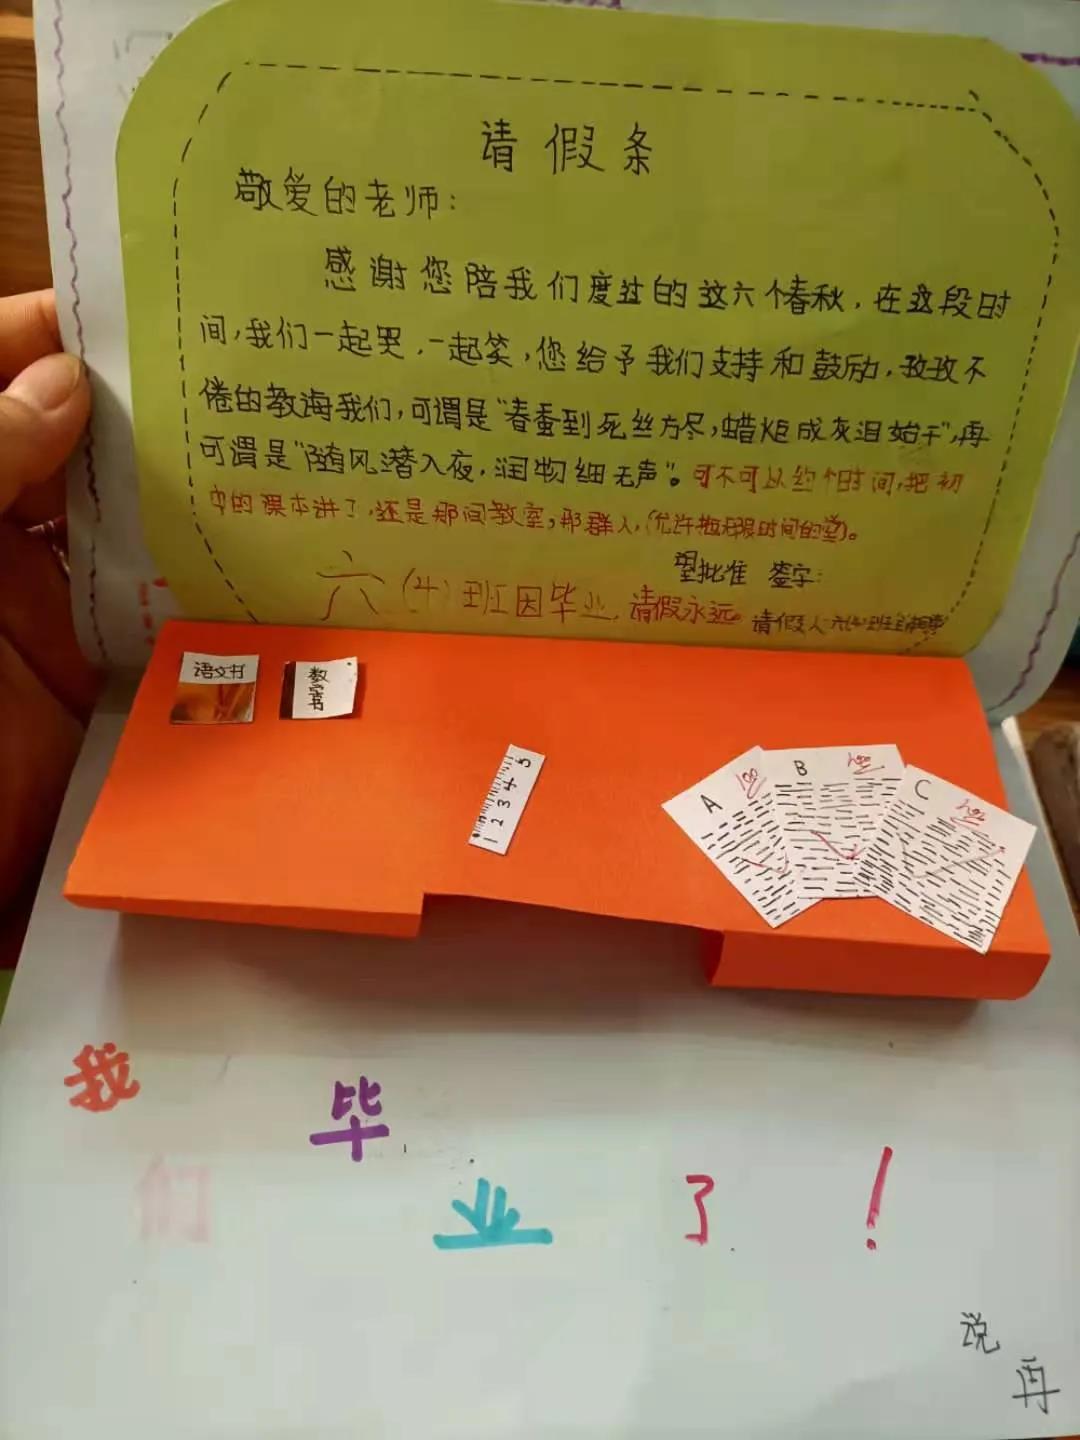 请假条
敬爱的老师：
感谢您陪我们度过的这六个春秋，在这段时
间，我们一起哭，一起笑，您给予我们支持和鼓励，孜孜不
倦的教诲我们，可谓是“春蚕到死丝方尽，蜡炬成灰泪始干”，再
可谓是“随风潜入夜，润物细无声”。可不可以约个时间，把初
中的课本讲了，还是那间教室，那群人，(允许拖无限时间的堂)。
望批准 签字：
六(4)班因毕业，请假永远。请假人：六(4)班全体同学
语文书
数学书
1 2 3 4 5
A 100
B 100
C 100
我们毕业了！
说再